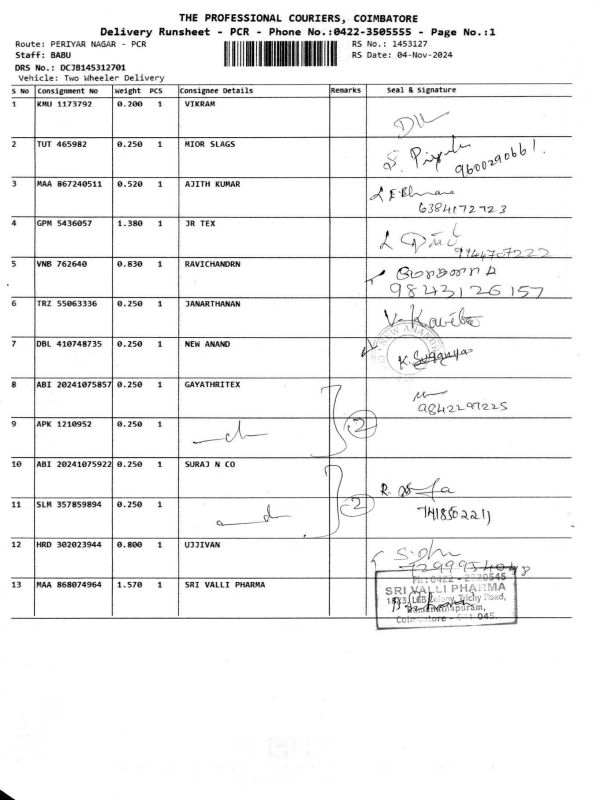 THE PROFESSIONAL COURIERS, COIMBATORE
Delivery Runsheet - PCR - Phone No.:0422-3505555 - Page No.:1
Route: PERIYAR NAGAR - PCR RS No.: 1453127
Staff: BABU RS Date: 04-Nov-2024
DRS No.: DCJB145312701
Vehicle: Two Wheeler Delivery
S No Consignment No Weight PCS Consignee Details Remarks Seal & Signature
1 KMU 1173792 0.200 1 VIKRAM
2 TUT 465982 0.250 1 MIOR SLAGS
9600290661.
3 MAA 867240511 0.520 1 AJITH KUMAR
6384172723
4 GPM 5436057 1.380 1 JR TEX
9944707222
5 VNB 762640 0.830 1 RAVICHANDRN
9843126157
6 TRZ 55063336 0.250 1 JANARTHANAN
V. Kavitha
7 DBL 410748735 0.250 1 NEW ANAND
NEW ANAND
K. Suganya
8 ABI 20241075857 0.250 1 GAYATHRITEX
9842297225
9 APK 1210952 0.250 1
2
10 ABI 20241075922 0.250 1 SURAJ N CO
11 SLM 357859894 0.250 1
2
7418502211
12 HRD 302023944 0.800 1 UJJIVAN
7299954048
13 MAA 868074964 1.570 1 SRI VALLI PHARMA
Ph : 0422 - 2320545
SRI VALLI PHARMA
LGB Colony, Trichy Road,
Ramanathapuram,
Coimbatore - 641 045.